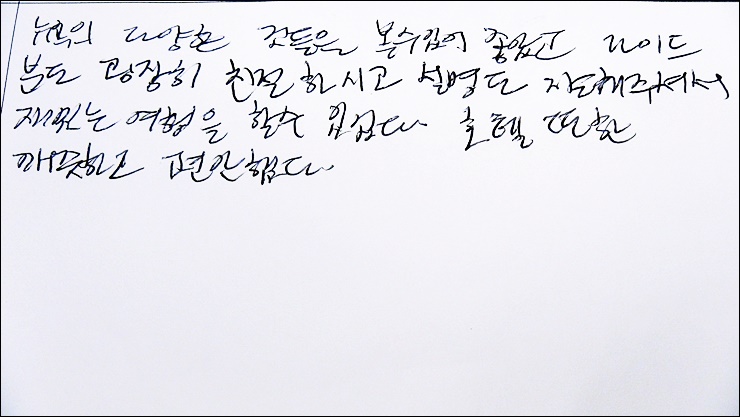 뉴욕의 다양한 것들을 볼수있어 좋았고 가이드
분도 굉장히 친절하시고 설명도 잘해주셔서
재밌는 여행을 할수 있었다. 호텔 또한
깨끗하고 편안했다.